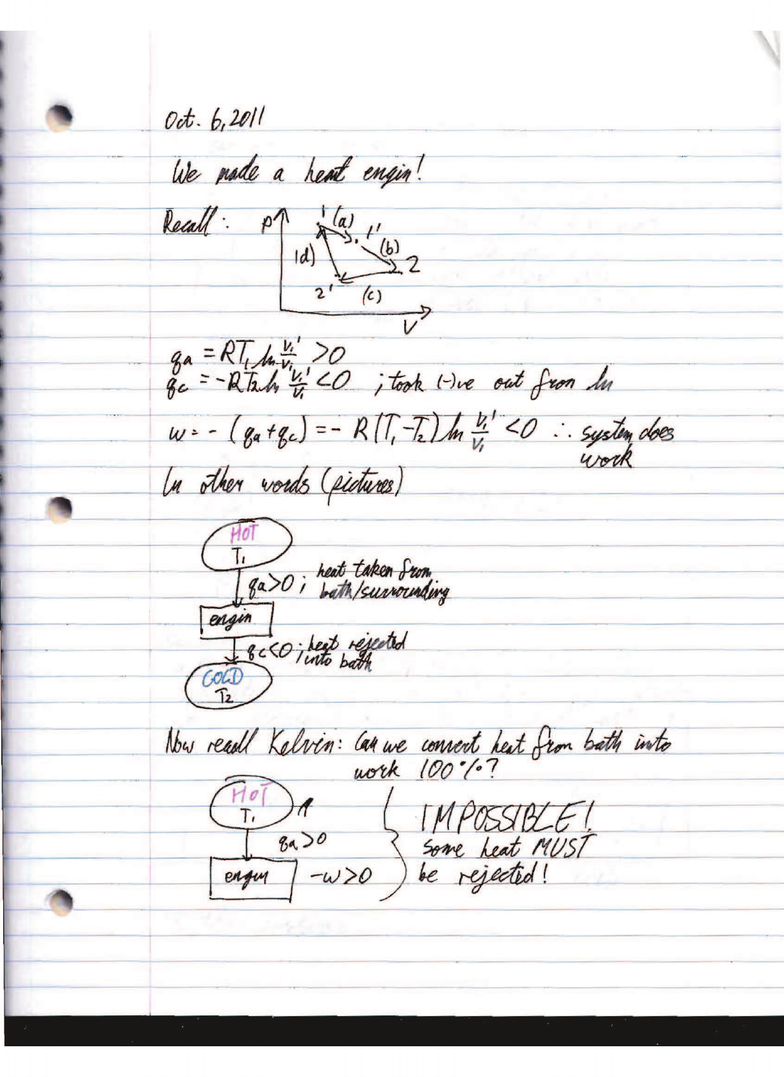 Oct. 6, 2011
We made a heat engin!
Recall:
P
1 (a)
1'
(b)
(d)
2
2'
(c)
V
qa = RT₁ ln V₁'/V₁ >0
qc = -RT₂ ln V₁'/V₁ <0 ; took (-)ve out from ln
w = - (qa+qc) = - R(T₁-T₂) ln V₁'/V₁ <0 ∴ system does
work
In other words (pictures)
HOT
T₁
qa>0 ; heat taken from
bath/surrounding
engin
qc<0 ; heat rejected
into bath
COLD
T₂
Now recall Kelvin: Can we convert heat from bath into
work 100%?
HOT
T₁
qa>0
engin -w>0
IMPOSSIBLE!
Some heat MUST
be rejected!